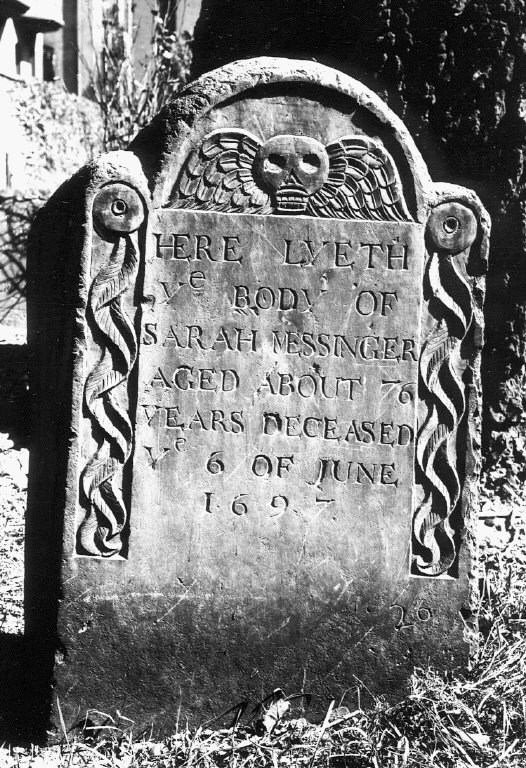 HERE LYETH
Yᵉ BODY OF
SARAH MESSINGER
AGED ABOUT 76
YEARS DECEASED
Yᵉ 6 OF JUNE
1·6·9·7·
26